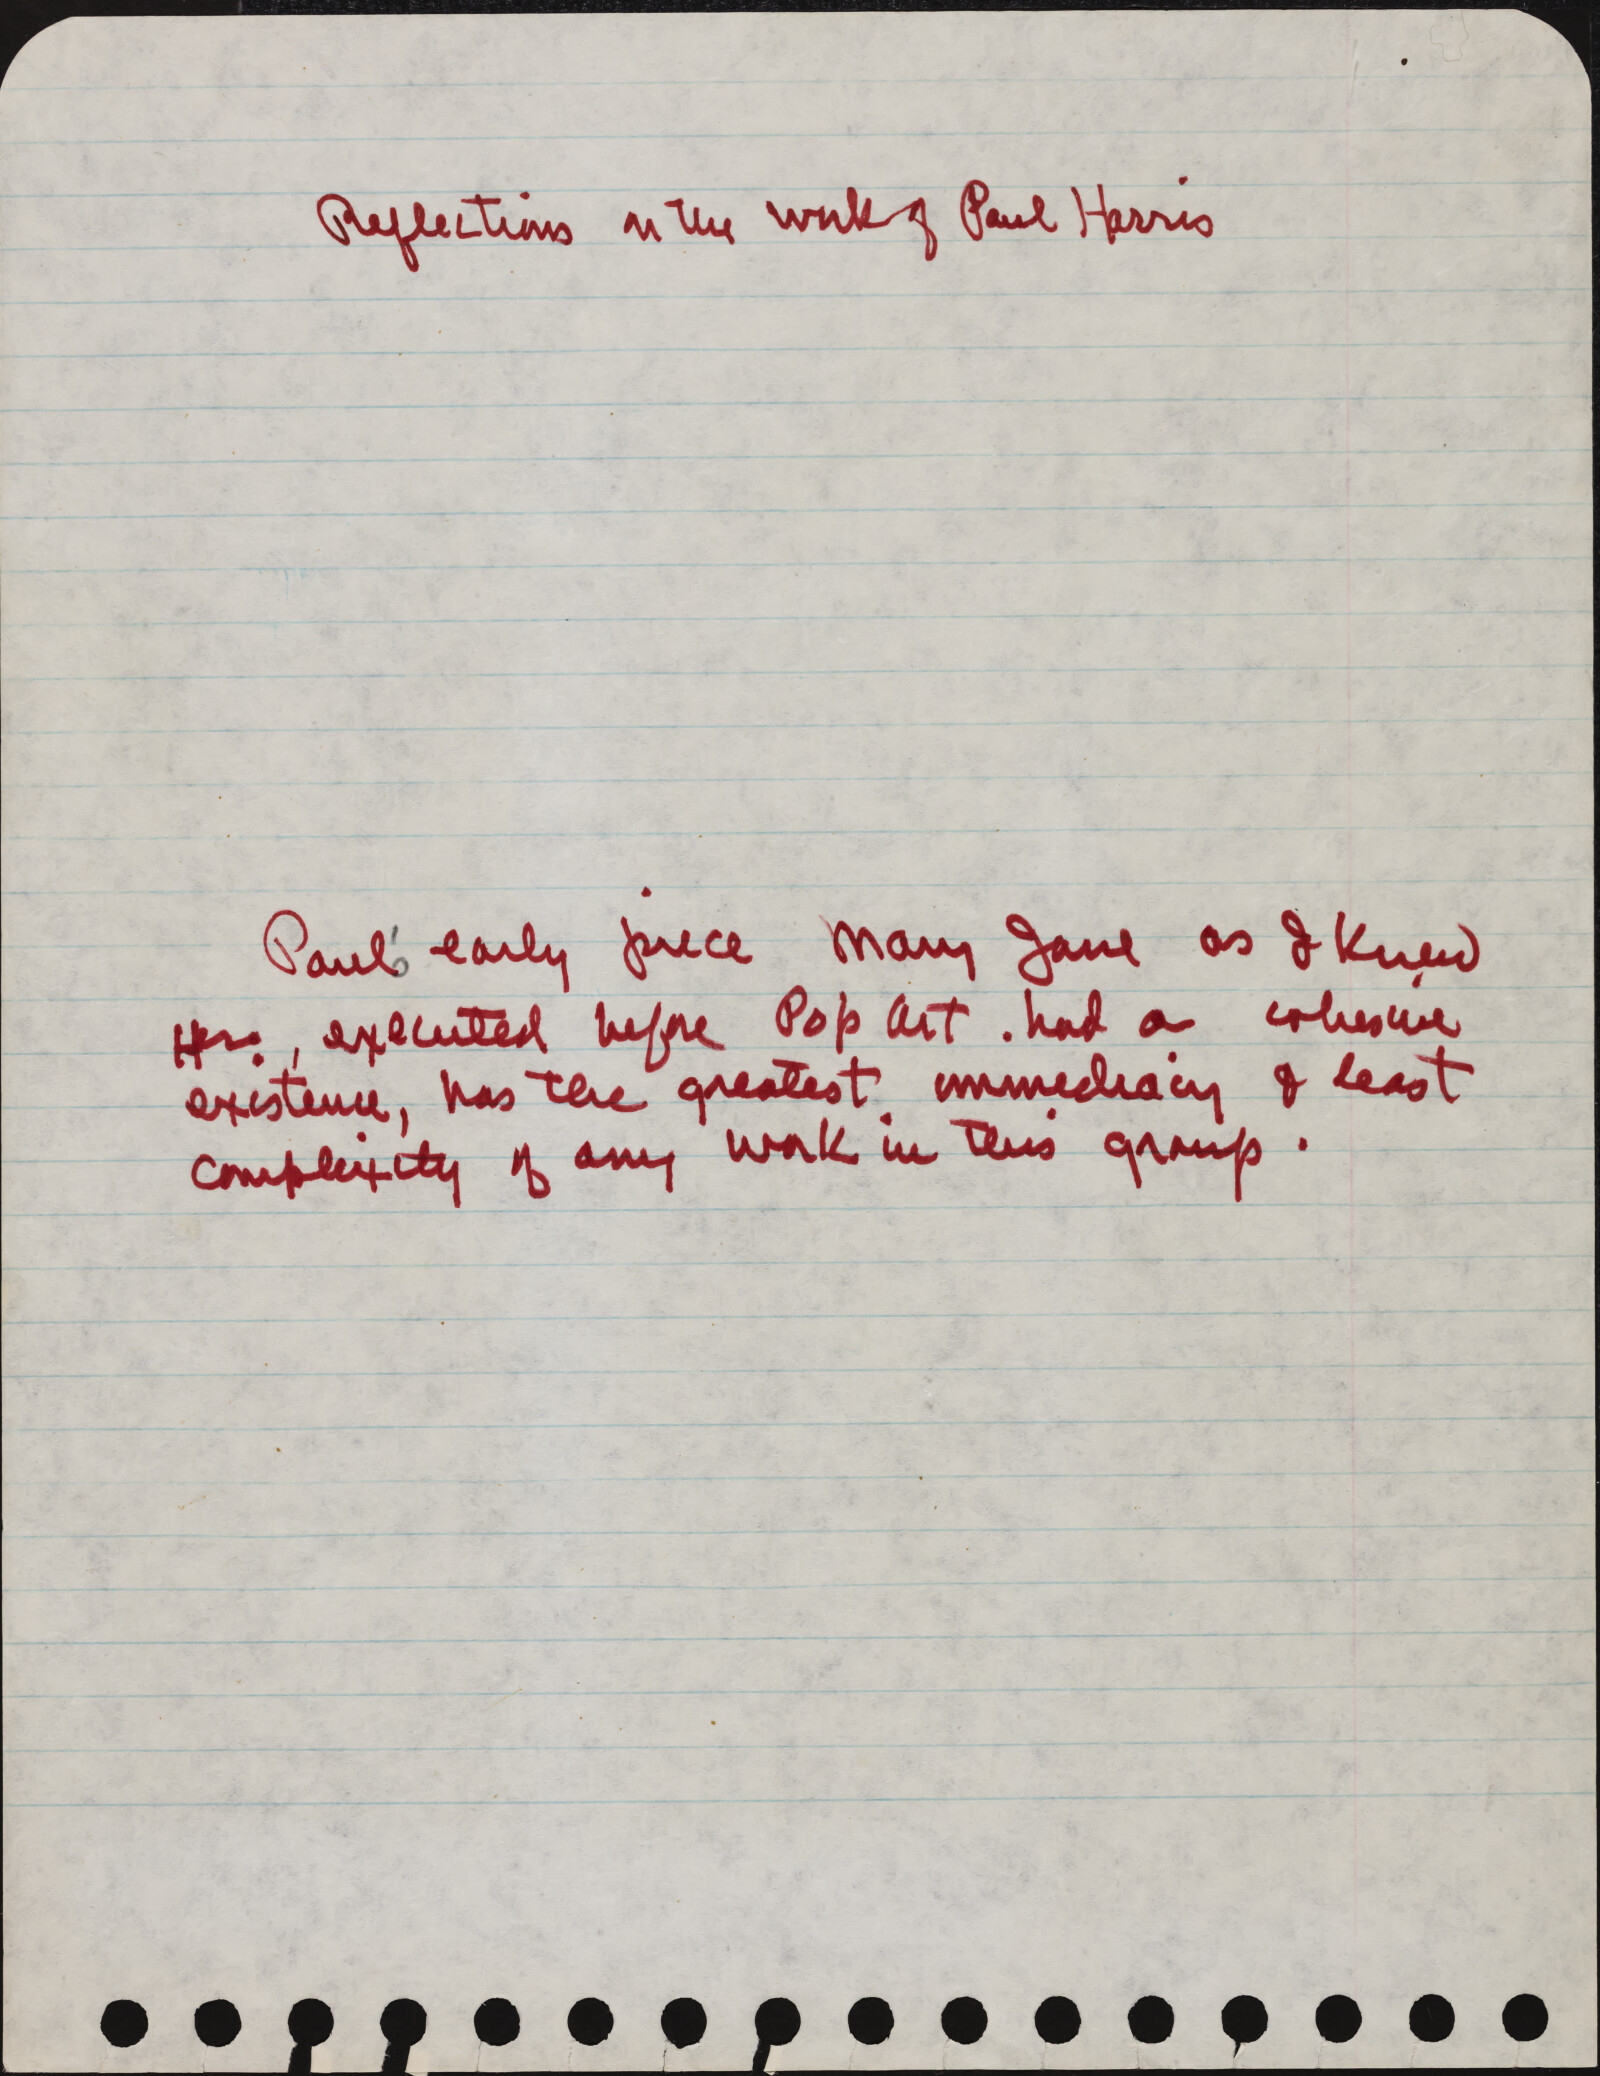 Reflections on the work of Paul Harris
Paul's early piece Mary Jane as I knew
Her, executed before Pop Art. had a cohesive
existence, has the greatest immediacy & least
complexity of any work in this group.